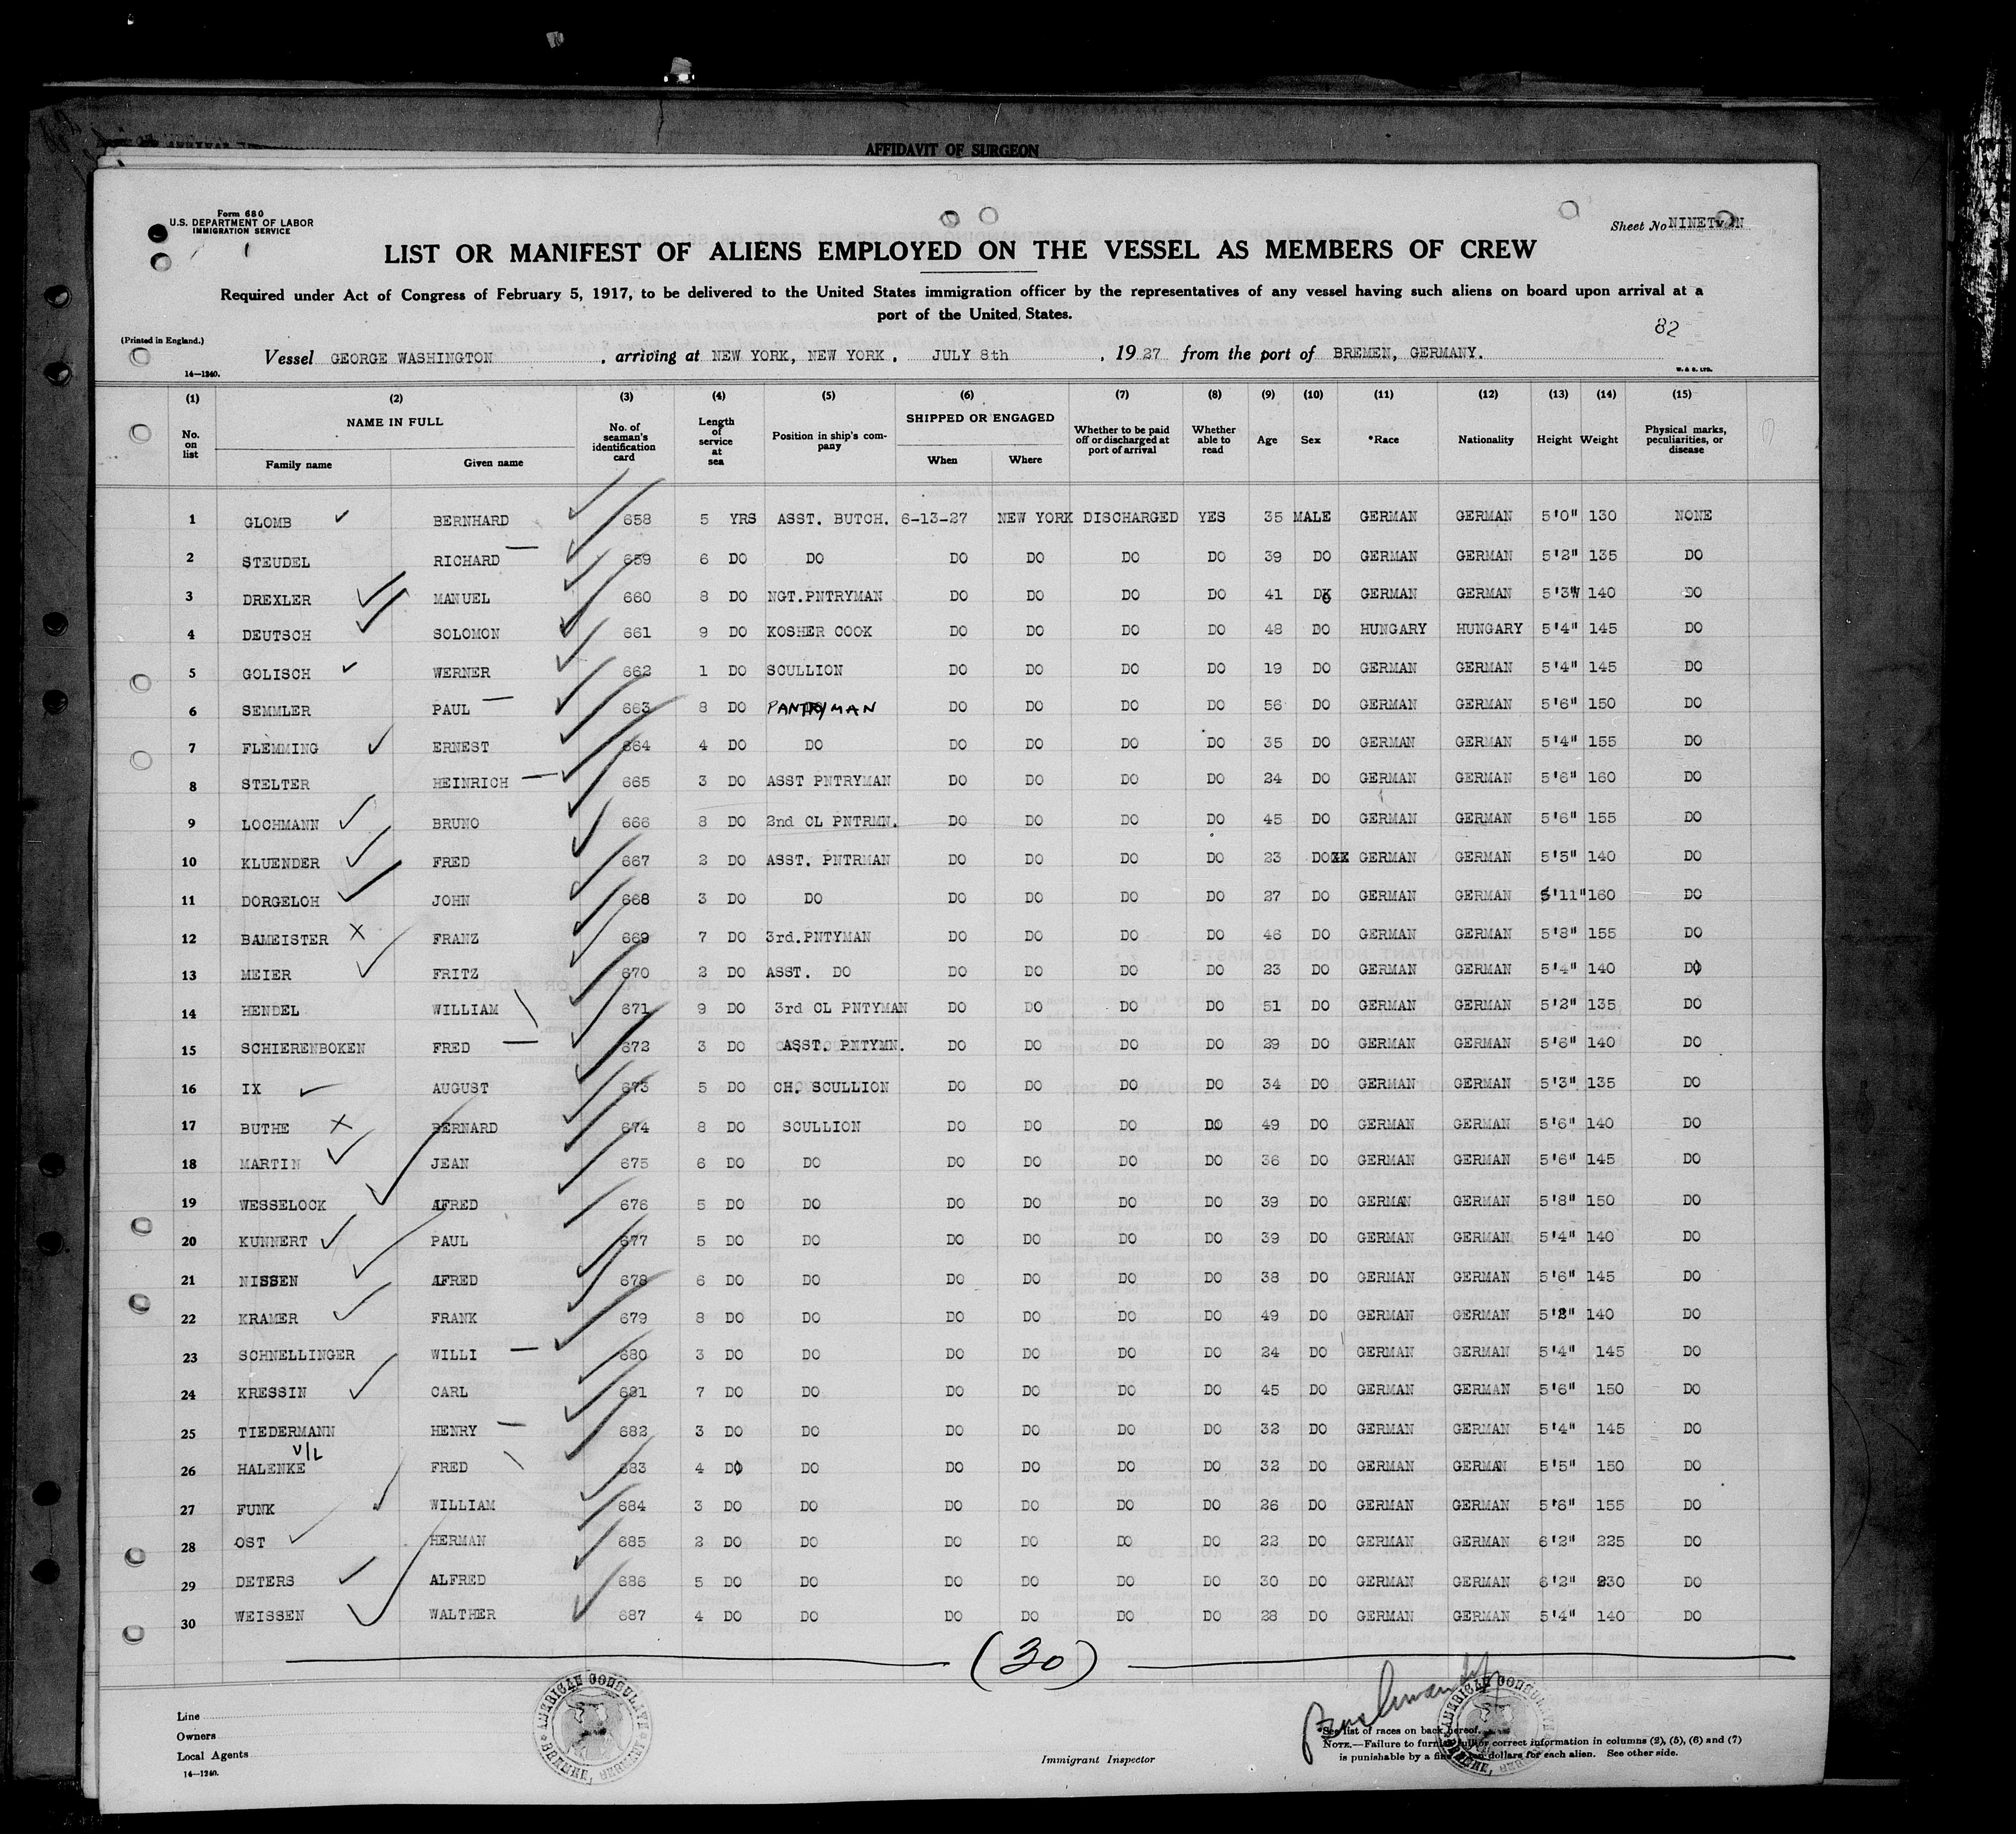 AFFIDAVIT OF SURGEON
Form 680
U.S. DEPARTMENT OF LABOR
IMMIGRATION SERVICE
Sheet No
LIST OR MANIFEST OF ALIENS EMPLOYED ON THE VESSEL AS MEMBERS OF CREW
Required under Act of Congress of February 5, 1917, to be delivered to the United States immigration officer by the representatives of any vessel having such aliens on board upon arrival at a
port of the United States.
82
(Printed in England.)
Vessel GEORGE WASHINGTON, arriving at NEW YORK, NEW YORK, JULY 8th, 1927 from the port of BREMEN, GERMANY.
14—1240. W. & S. LTD.
(1) (2) (3) (4) (5) (6) (7) (8) (9) (10) (11) (12) (13) (14) (15)
No. on list NAME IN FULL Family name Given name No. of seaman's identification card Length of service at sea Position in ship's company SHIPPED OR ENGAGED When Where Whether to be paid off or discharged at port of arrival Whether able to read Age Sex *Race Nationality Height Weight Physical marks, peculiarities, or disease
1 GLOMB BERNHARD 658 5 YRS ASST. BUTCH. 6-13-27 NEW YORK DISCHARGED YES 35 MALE GERMAN GERMAN 5'0" 130 NONE
2 STEUDEL RICHARD 659 6 DO DO DO DO DO DO 39 DO GERMAN GERMAN 5'2" 135 DO
3 DREXLER MANUEL 660 8 DO NGT.PNTRYMAN DO DO DO DO 41 DO GERMAN GERMAN 5'3" 140 DO
4 DEUTSCH SOLOMON 661 9 DO KOSHER COOK DO DO DO DO 48 DO HUNGARY HUNGARY 5'4" 145 DO
5 GOLISCH WERNER 662 1 DO SCULLION DO DO DO DO 19 DO GERMAN GERMAN 5'4" 145 DO
6 SEMMLER PAUL 663 8 DO PANTRYMAN DO DO DO DO 56 DO GERMAN GERMAN 5'6" 150 DO
7 FLEMMING ERNEST 664 4 DO DO DO DO DO DO 35 DO GERMAN GERMAN 5'4" 155 DO
8 STELTER HEINRICH 665 3 DO ASST PNTRYMAN DO DO DO DO 24 DO GERMAN GERMAN 5'6" 160 DO
9 LOCHMANN BRUNO 666 8 DO 2nd CL PNTRMN. DO DO DO DO 45 DO GERMAN GERMAN 5'6" 155 DO
10 KLUENDER FRED 667 2 DO ASST. PNTRMAN DO DO DO DO 23 DOXX GERMAN GERMAN 5'5" 140 DO
11 DORGELOH JOHN 668 3 DO DO DO DO DO DO 27 DO GERMAN GERMAN 5'11" 160 DO
12 BAMEISTER X FRANZ 669 7 DO 3rd.PNTYMAN DO DO DO DO 46 DO GERMAN GERMAN 5'8" 155 DO
13 MEIER FRITZ 670 2 DO ASST. DO DO DO DO DO 23 DO GERMAN GERMAN 5'4" 140 DO
14 HENDEL WILLIAM 671 9 DO 3rd CL PNTYMAN DO DO DO DO 51 DO GERMAN GERMAN 5'2" 135 DO
15 SCHIERENBOKEN FRED 672 3 DO ASST. PNTYMN. DO DO DO DO 29 DO GERMAN GERMAN 5'6" 140 DO
16 IX AUGUST 673 5 DO CH. SCULLION DO DO DO DO 34 DO GERMAN GERMAN 5'3" 135 DO
17 BUTHE X BERNARD 674 8 DO SCULLION DO DO DO DO 49 DO GERMAN GERMAN 5'6" 140 DO
18 MARTIN JEAN 675 6 DO DO DO DO DO DO 36 DO GERMAN GERMAN 5'6" 145 DO
19 WESSELOCK AFRED 676 5 DO DO DO DO DO DO 39 DO GERMAN GERMAN 5'8" 150 DO
20 KUNNERT PAUL 677 5 DO DO DO DO DO DO 39 DO GERMAN GERMAN 5'4" 140 DO
21 NISSEN AFRED 678 6 DO DO DO DO DO DO 38 DO GERMAN GERMAN 5'6" 145 DO
22 KRAMER FRANK 679 8 DO DO DO DO DO DO 49 DO GERMAN GERMAN 140 DO
23 SCHNELLINGER WILLI 680 3 DO DO DO DO DO DO 24 DO GERMAN GERMAN 5'4" 145 DO
24 KRESSIN CARL 681 7 DO DO DO DO DO DO 45 DO GERMAN GERMAN 5'6" 150 DO
25 TIEDERMANN HENRY 682 3 DO DO DO DO DO DO 32 DO GERMAN GERMAN 5'4" 145 DO
V/L
26 HALENKE FRED 683 4 DO DO DO DO DO DO 32 DO GERMAN GERMAN 5'5" 150 DO
27 FUNK WILLIAM 684 3 DO DO DO DO DO DO 26 DO GERMAN GERMAN 5'6" 155 DO
28 OST HERMAN 685 2 DO DO DO DO DO DO 22 DO GERMAN GERMAN 6'2" 225 DO
29 DETERS ALFRED 686 5 DO DO DO DO DO DO 30 DO GERMAN GERMAN 6'2" 230 DO
30 WEISSEN WALTHER 687 4 DO DO DO DO DO DO 28 DO GERMAN GERMAN 5'4" 140 DO
(30)
Line
Owners
Local Agents
14—1240.
AMERICAN CONSULATE BREMEN, GERMANY
Immigrant Inspector
AMERICAN CONSULATE BREMEN, GERMANY
*See list of races on back hereof.
NOTE.—Failure to furnish full or correct information in columns (2), (5), (6) and (7)
is punishable by a fine of ten dollars for each alien. See other side.